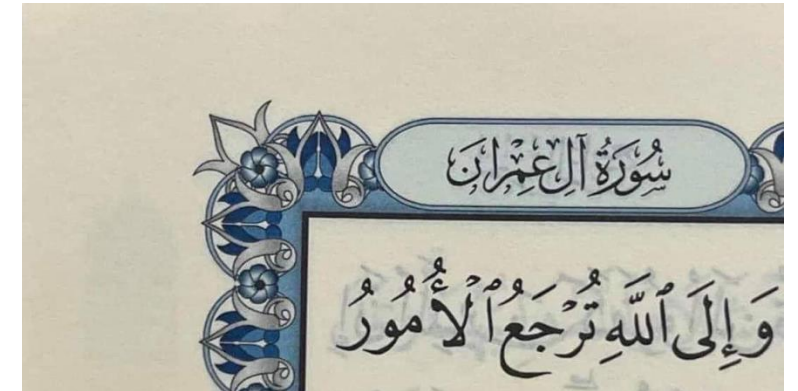 سُورَةُ آلِ عِمْرَانَ
وَإِلَى ٱللَّهِ تُرْجَعُ ٱلْأُمُورُ